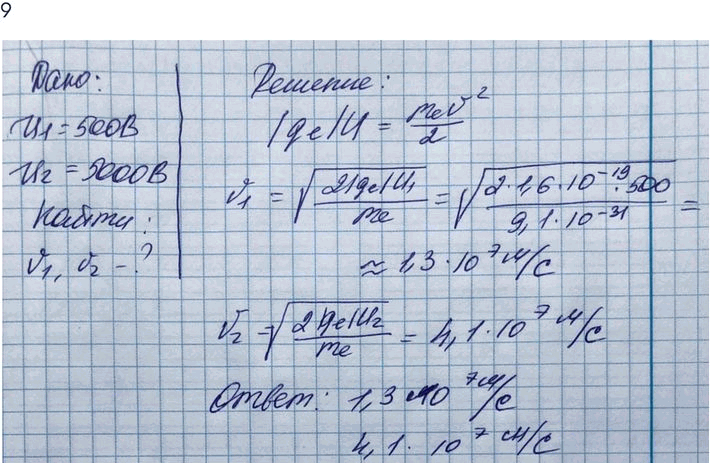 9
Дано:
U1 = 500В
U2 = 5000В
Найти:
v1, v2 - ?
Решение:
|qe|U = mev²/2
v1 = √(2|qe|U1/me) = √(2·1,6·10⁻¹⁹·500/9,1·10⁻³¹) =
≈ 1,3·10⁷ м/с
v2 = √(2|qe|U2/me) = 4,1·10⁷ м/с
Ответ: 1,3·10⁷ м/с
4,1·10⁷ м/с